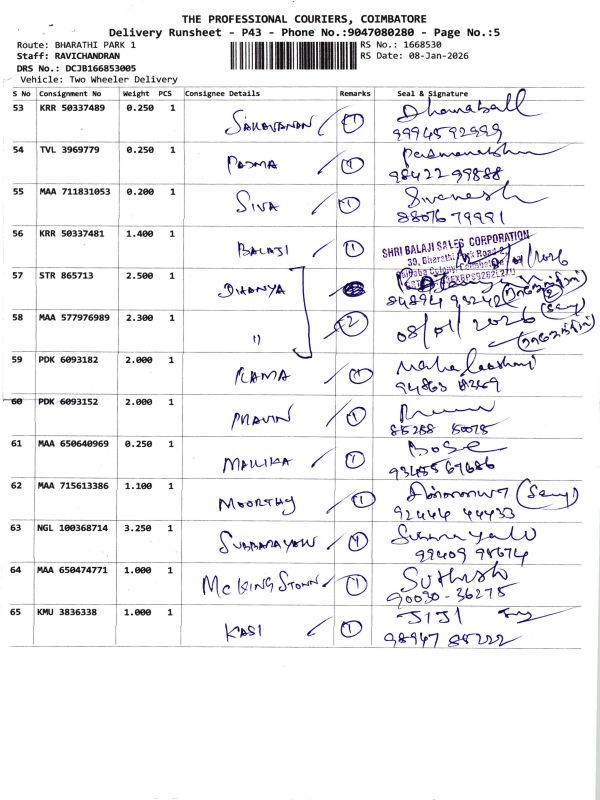 THE PROFESSIONAL COURIERS, COIMBATORE
Delivery Runsheet - P43 - Phone No.:9047080280 - Page No.:5
Route: BHARATHI PARK 1
RS No.: 1668530
Staff: RAVICHANDRAN
RS Date: 08-Jan-2026
DRS No.: DCJB166853005
Vehicle: Two Wheeler Delivery
S No Consignment No Weight PCS Consignee Details Remarks Seal & Signature
53 KRR 50337489 0.250 1 SARAVANAN 1
99945 92999
54 TVL 3969779 0.250 1 PADMA 1
98422 99888
55 MAA 711831053 0.200 1 SIVA 1 Sivanesh
88076 79991
56 KRR 50337481 1.400 1 BALAJI 1
SHRI BALAJI SALES CORPORATION
30, Bharathi Park Road
57 STR 865713 2.500 1 DHANYA
84894 93242
58 MAA 577976989 2.300 1 " 2 08/01/2026
59 PDK 6093182 2.000 1 RAMA 1 Mahalakshmi
94863
60 PDK 6093152 2.000 1 PRAVIN 1
85288 50075
61 MAA 650640969 0.250 1 MALLIKA 1 Bose
93455 67686
62 MAA 715613386 1.100 1 MOORTHY 1
92444 44433
63 NGL 100368714 3.250 1 SUBBARAYALU 1
99409 98674
64 MAA 650474771 1.000 1 MC KINGSTOWN 1 Suthish
90030-36275
65 KMU 3836338 1.000 1 KASI 1 JIJI
98947 88222